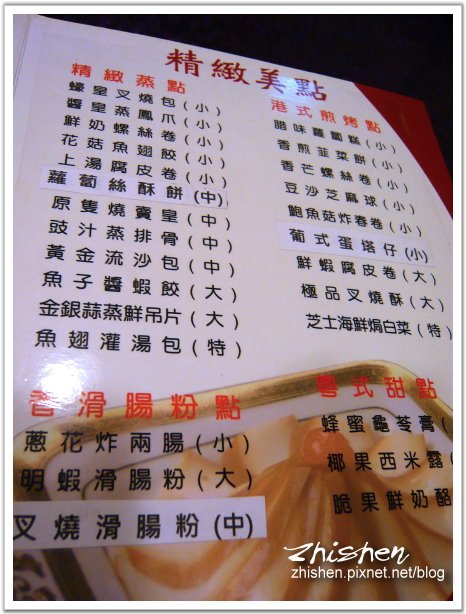 精緻美點
精緻蒸點
蠔皇叉燒包(小)
醬皇蒸鳳爪(小)
鮮奶螺絲卷(小)
花菇魚翅餃(小)
上湯腐皮卷(小)
蘿蔔絲酥餅(中)
原隻燒賣皇(中)
豉汁蒸排骨(中)
黃金流沙包(中)
魚子醬蝦餃(大)
金銀蒜蒸鮮吊片(大)
魚翅灌湯包(特)
港式煎烤點
腊味蘿蔔糕(小)
香煎韮菜餅(小)
香芒螺絲卷(小)
豆沙芝麻球(小)
鮑魚菇炸春卷(小)
葡式蛋塔仔(小)
鮮蝦腐皮卷(大)
極品叉燒酥(大)
芝士海鮮焗白菜(特)
香滑腸粉點
蔥花炸兩腸(小)
明蝦滑腸粉(大)
叉燒滑腸粉(中)
粵式甜點
蜂蜜龜苓膏(
椰果西米露(
脆果鮮奶酪
zhishen
zhishen.pixnet.net/blog